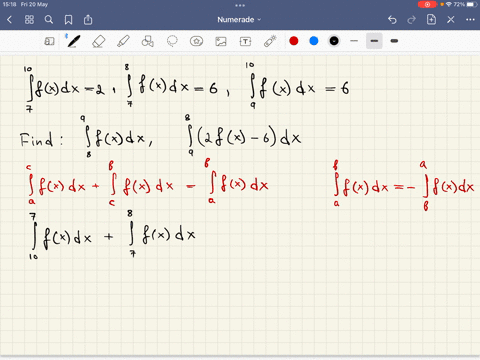 15:18 Fri 20 May 72%
Numerade
∫₇¹⁰ f(x) dx = 2, ∫₇⁸ f(x) dx = 6, ∫₉¹⁰ f(x) dx = 6
Find: ∫₈⁹ f(x) dx, ∫₉⁸ (2f(x) − 6) dx
∫ₐᶜ f(x) dx + ∫꜀ᵇ f(x) dx = ∫ₐᵇ f(x) dx ∫ₐᵇ f(x) dx = − ∫ᵦᵃ f(x) dx
∫₁₀⁷ f(x) dx + ∫₇⁸ f(x) dx